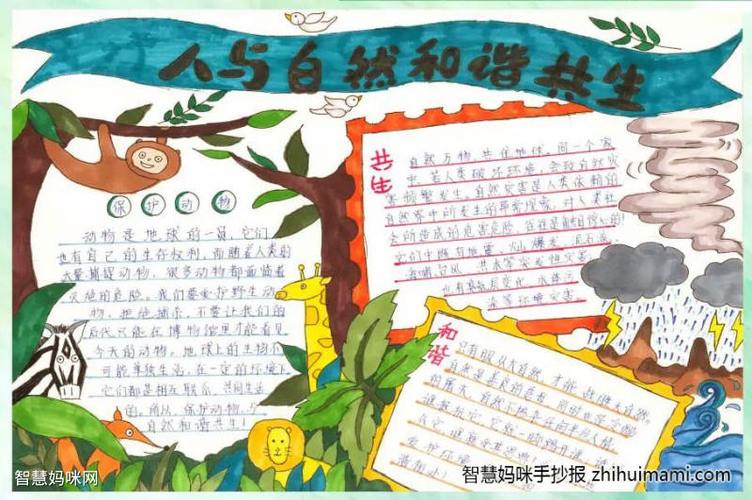 人与自然和谐共生
保护动物
动物是地球的一员,它们
也有自己的生存权利,而随着人类的
大量捕捉动物,很多动物都面临着
灭绝的危险。我们要爱护野生动
物,拒绝捕杀,不要让我们的
后代只能在博物馆里才能看见
今天的动物。地球上的生物不
可能单独生活,在一定的环境下
它们都是相互联系、共同生活
的。所以,保护动物,
自然和谐共生!
共生
自然万物,共住地球,同一个家
中,若人类破坏环境,会致自然灾
害频繁发生,自然灾害是人类依赖的
自然界中所发生的异常现象,对人类社
会所造成的危害
它们中既有地震、火山爆发、泥石流、
海啸、台风、洪水等突发性灾害
也有
等环境灾害
和谐
只有顺从大自然,才能
自然是
爱护环境
智慧妈咪网
智慧妈咪手抄报 zhihuimami.com